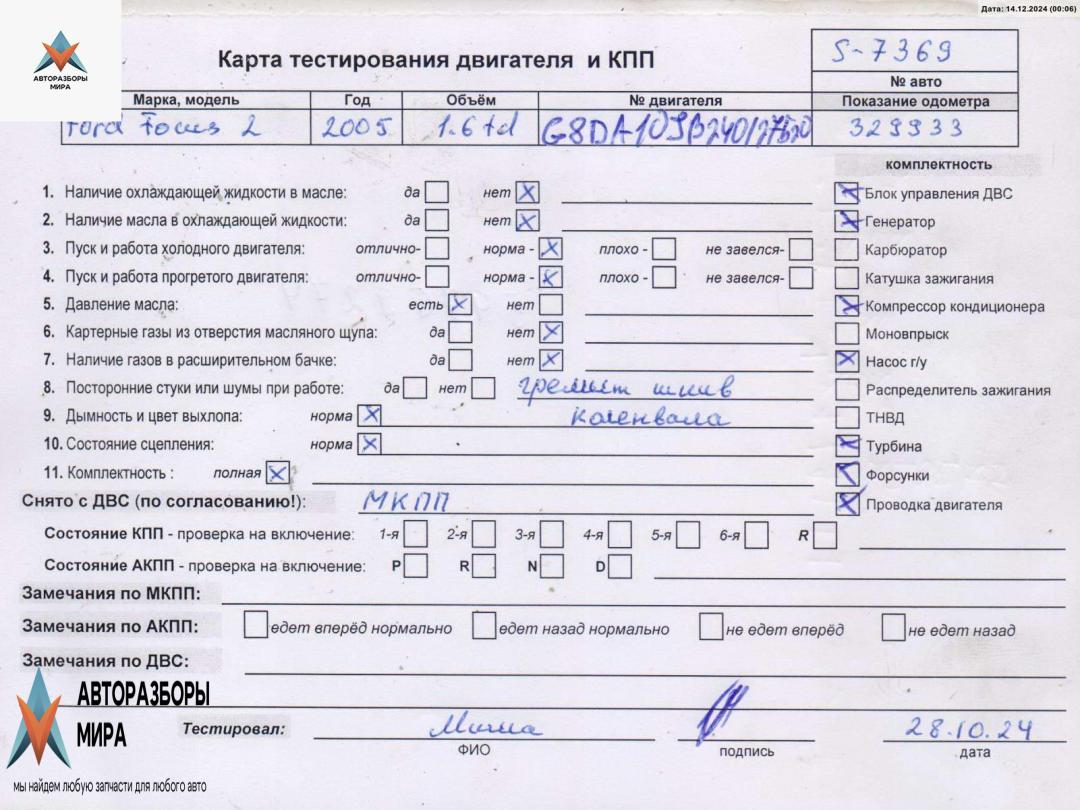 Дата: 14.12.2024 (00:06)
АВТОРАЗБОРЫ
МИРА
Карта тестирования двигателя и КПП
S-7369
№ авто
Марка, модель Год Объём № двигателя Показание одометра
Ford Focus 2 2005 1.6 td 329933
комплектность
1. Наличие охлаждающей жидкости в масле: да нет X
2. Наличие масла в охлаждающей жидкости: да нет X
3. Пуск и работа холодного двигателя: отлично- норма - X плохо - не завелся-
4. Пуск и работа прогретого двигателя: отлично- норма - X плохо - не завелся-
5. Давление масла: есть X нет
6. Картерные газы из отверстия масляного щупа: да нет X
7. Наличие газов в расширительном бачке: да нет X
8. Посторонние стуки или шумы при работе: да нет гремит шкив
9. Дымность и цвет выхлопа: норма X коленвала
10. Состояние сцепления: норма X
11. Комплектность : полная X
X Блок управления ДВС
X Генератор
Карбюратор
Катушка зажигания
X Компрессор кондиционера
Моновпрыск
X Насос г/у
Распределитель зажигания
ТНВД
X Турбина
Форсунки
X Проводка двигателя
Снято с ДВС (по согласованию!): МКПП
Состояние КПП - проверка на включение: 1-я 2-я 3-я 4-я 5-я 6-я R
Состояние АКПП - проверка на включение: P R N D
Замечания по МКПП:
Замечания по АКПП: едет вперёд нормально едет назад нормально не едет вперёд не едет назад
Замечания по ДВС:
АВТОРАЗБОРЫ
МИРА
мы найдем любую запчасти для любого авто
Тестировал: 28.10.24
ФИО подпись дата